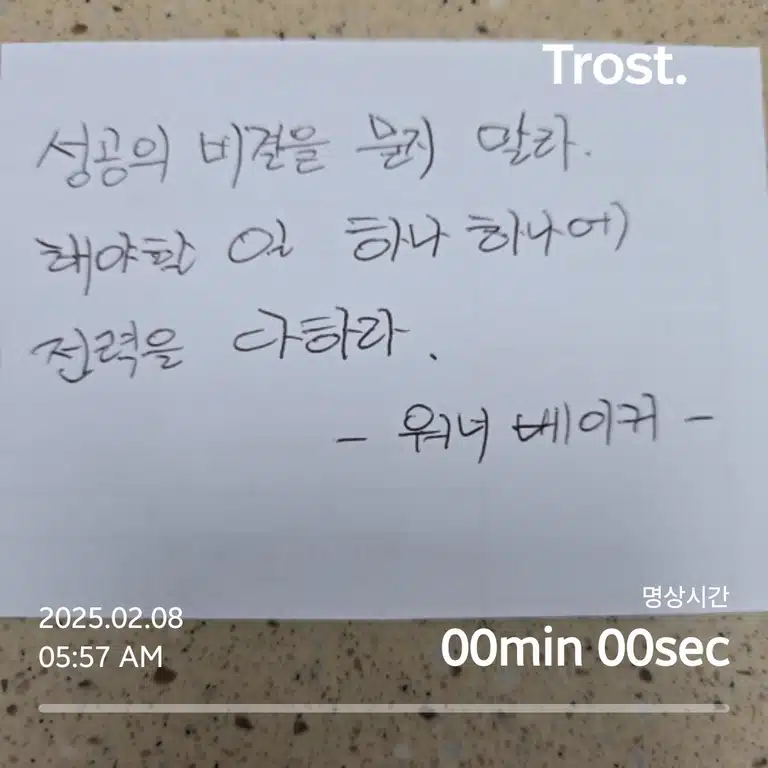 Trost.
성공의 비결을 묻지 말라.
해야할 일 하나 하나에
전력을 다하라.
- 워너 베이커 -
명상시간
2025.02.08
00min 00sec
05:57 AM